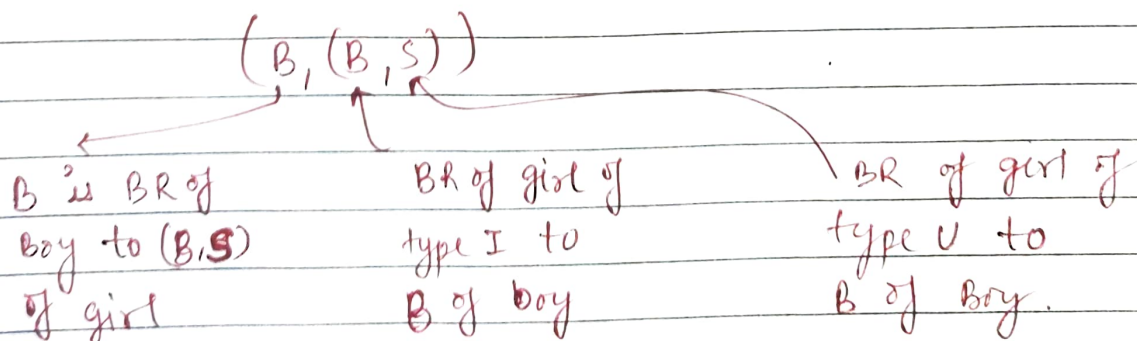 (B, (B, S))
B is BR of
Boy to (B,S)
of girl
BR of girl of
type I to
B of boy
BR of girl of
type U to
B of Boy.